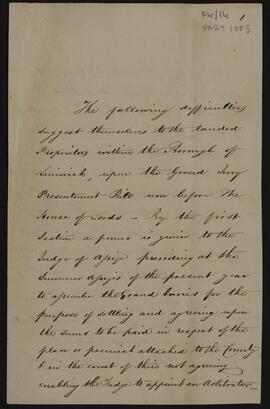 P4/14 1
PART 1 OF 5
The following difficulties
suggest themselves to the Landed
Proprietors within the Borough of
Limerick, upon the Grand Jury
Presentment Bill now before the
House of Lords — By the first
Section a power is given to the
Judge of Assize presiding at the
Summer Assizes of the present year
to assemble the Grand Juries for the
purpose of settling and agreeing upon
the sums to be paid in respect of the
plan or precinct attached to the County
& in the event of their not agreeing
enabling the Judge to appoint an Arbitrator